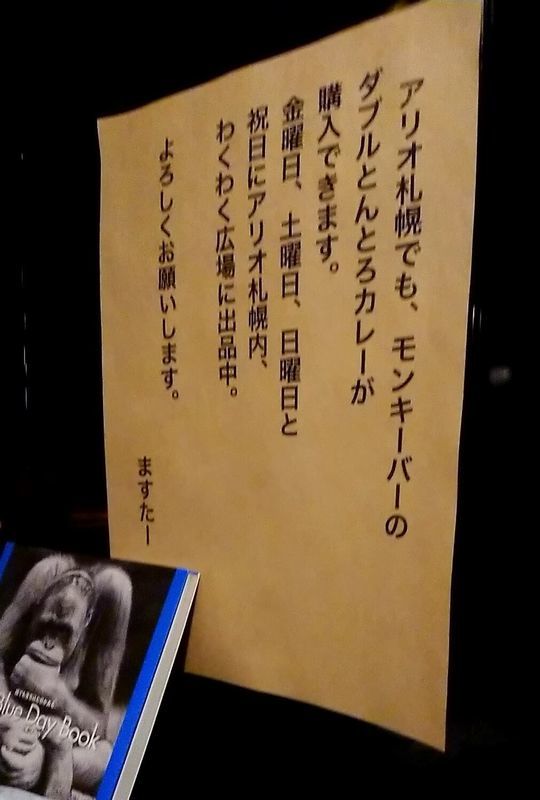 アリオ札幌でも、モンキーバーの
ダブルとんとろカレーが
購入できます。
金曜日、土曜日、日曜日と
祝日にアリオ札幌内、
わくわく広場に出品中。
よろしくお願いします。
ますたー
Blue Day Book